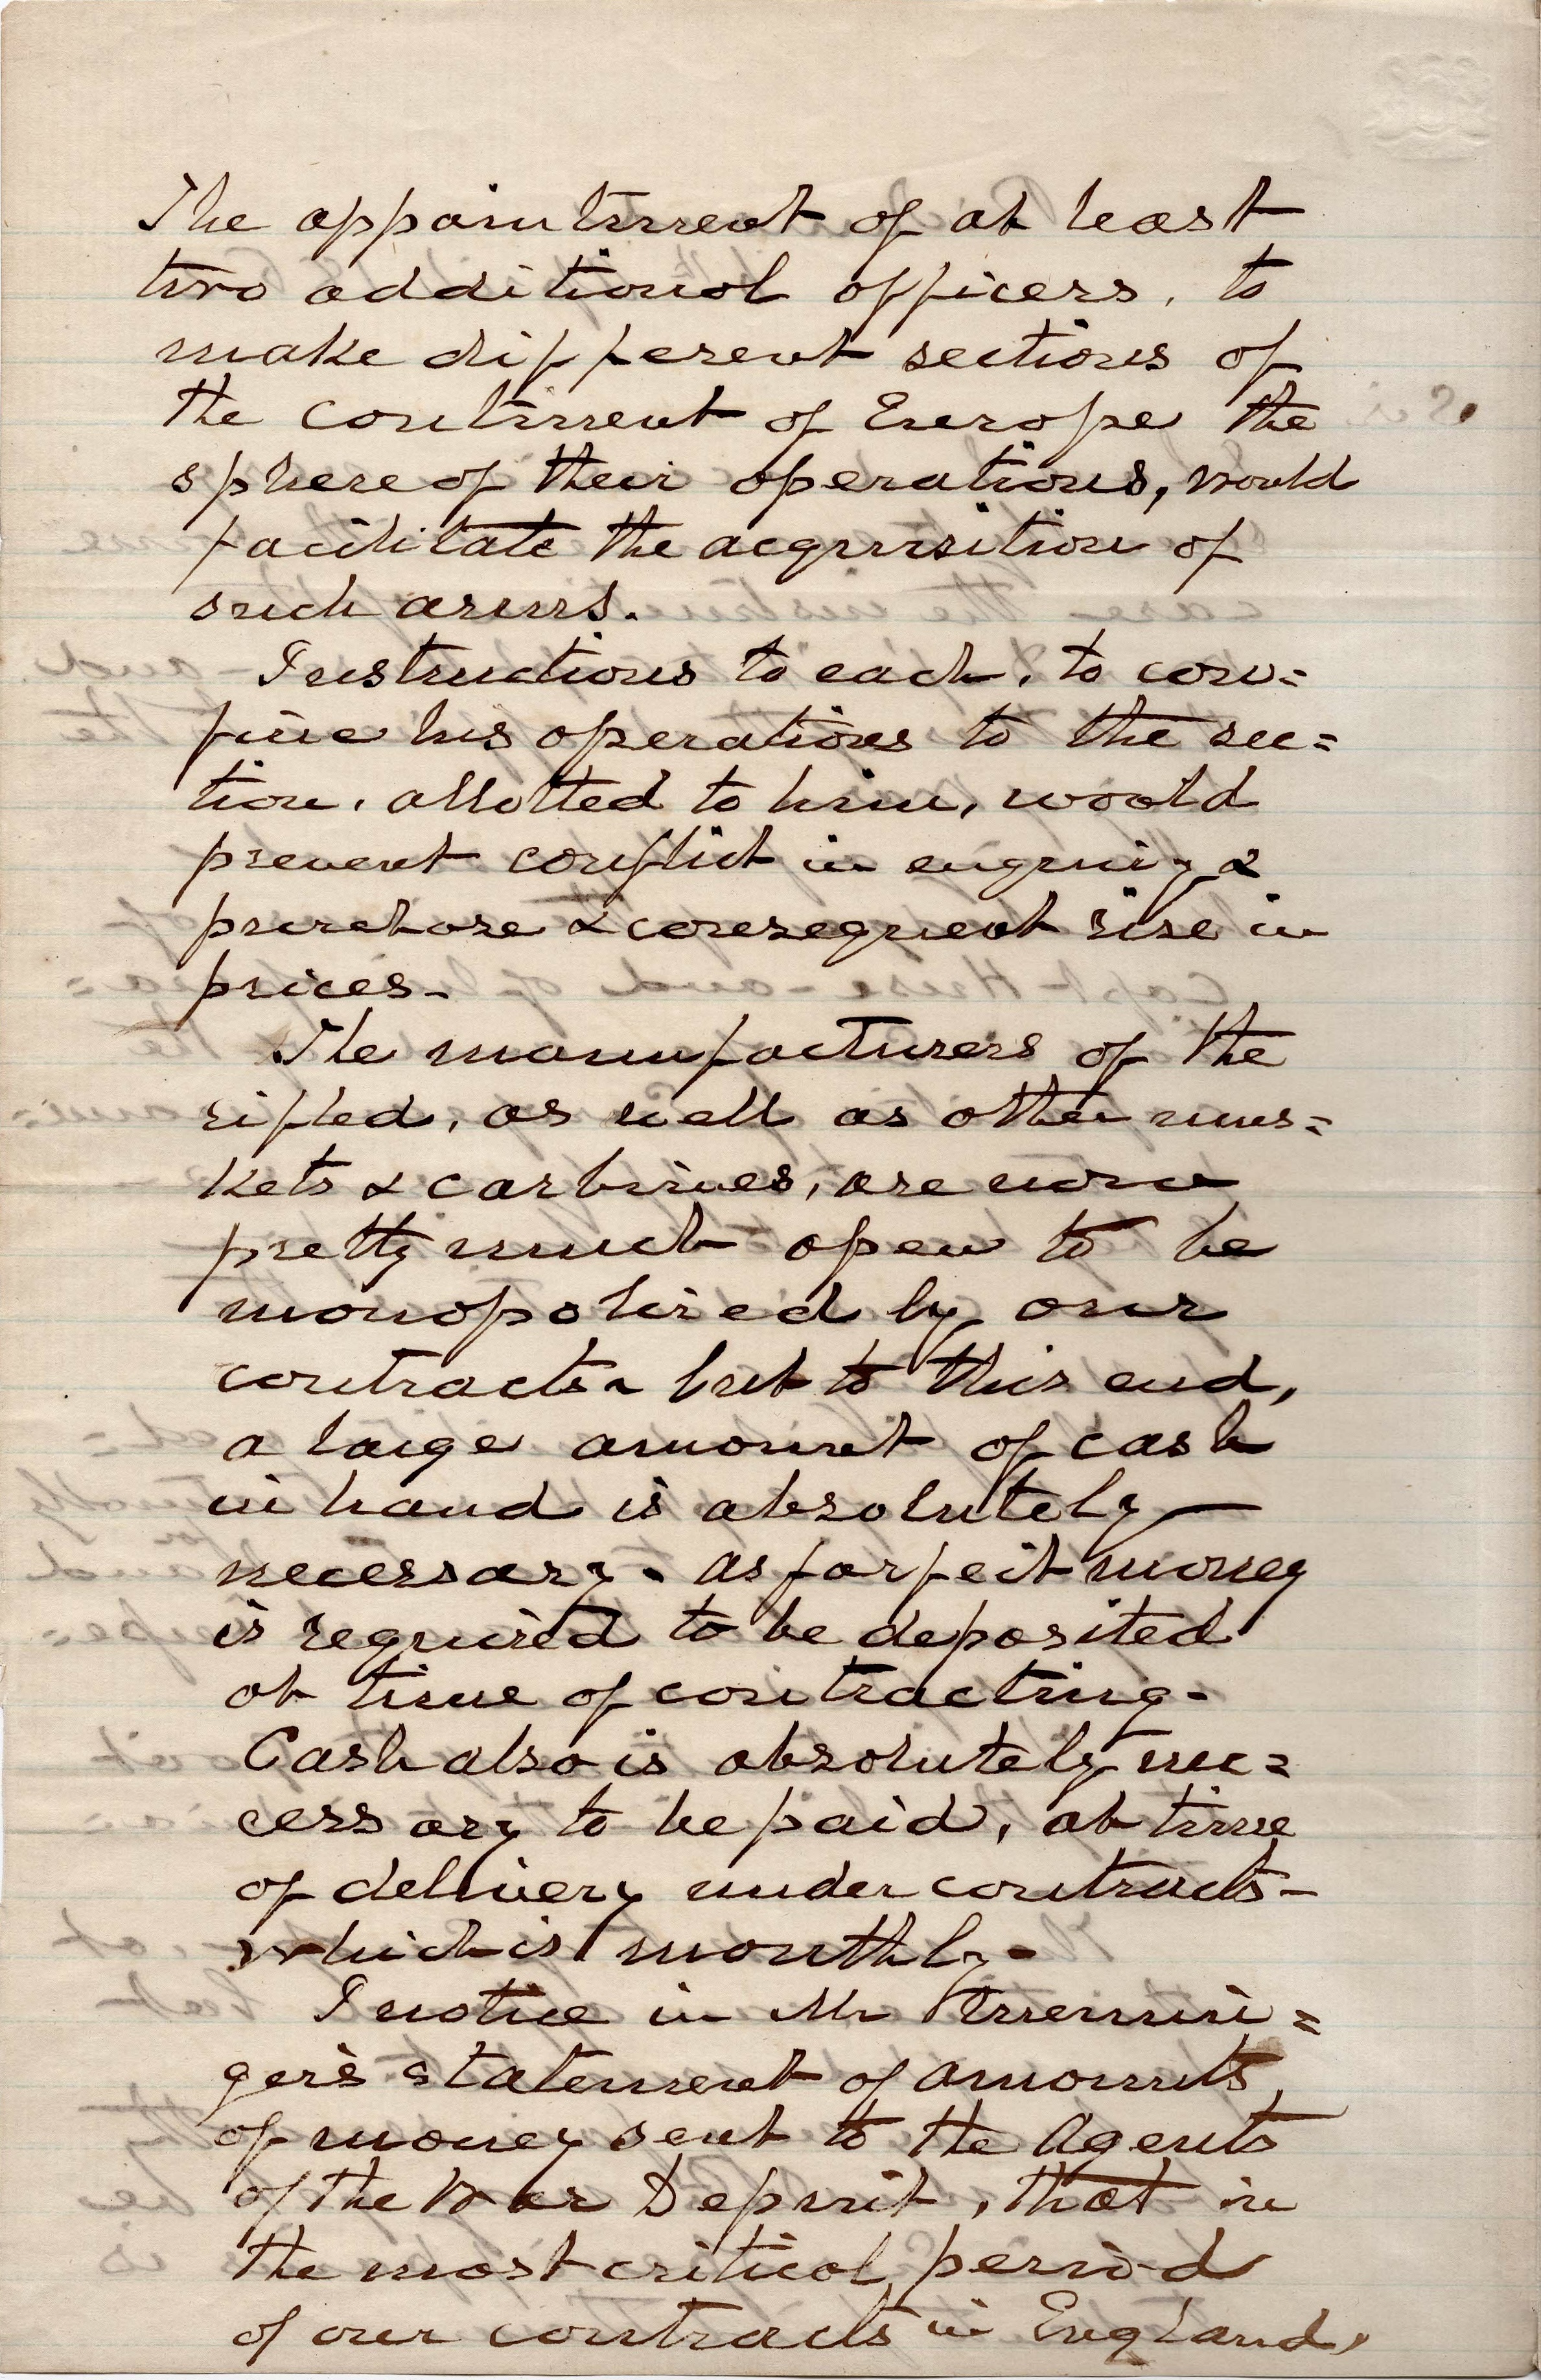 The appointment of at least
two additional officers, to
make different sections of
the continent of Europe the
sphere of their operations, would
facilitate the acquisition of
such arms.
Instructions to each, to con=
fine his operations to the sec=
tion, allotted to him, would
prevent conflict in enquiry &
purchase & consequent rise in
prices-
The manufacturers of the
rifled, as well as other mus=
kets & carbines, are now
pretty much open to be
monopolized by our
contracts - but to this end,
a large amount of cash
in hand is absolutely
necessary. as forfeit money
is required to be deposited
at time of contracting-
Cash also is absolutely nec=
cessary to be paid, at time
of delivery under contracts-
which is monthly-
I notice in Mr Memmin=
ger's statement of amounts
of money sent to the Agents
of the War Depmt, that in
the most critical period
of our contracts in England,